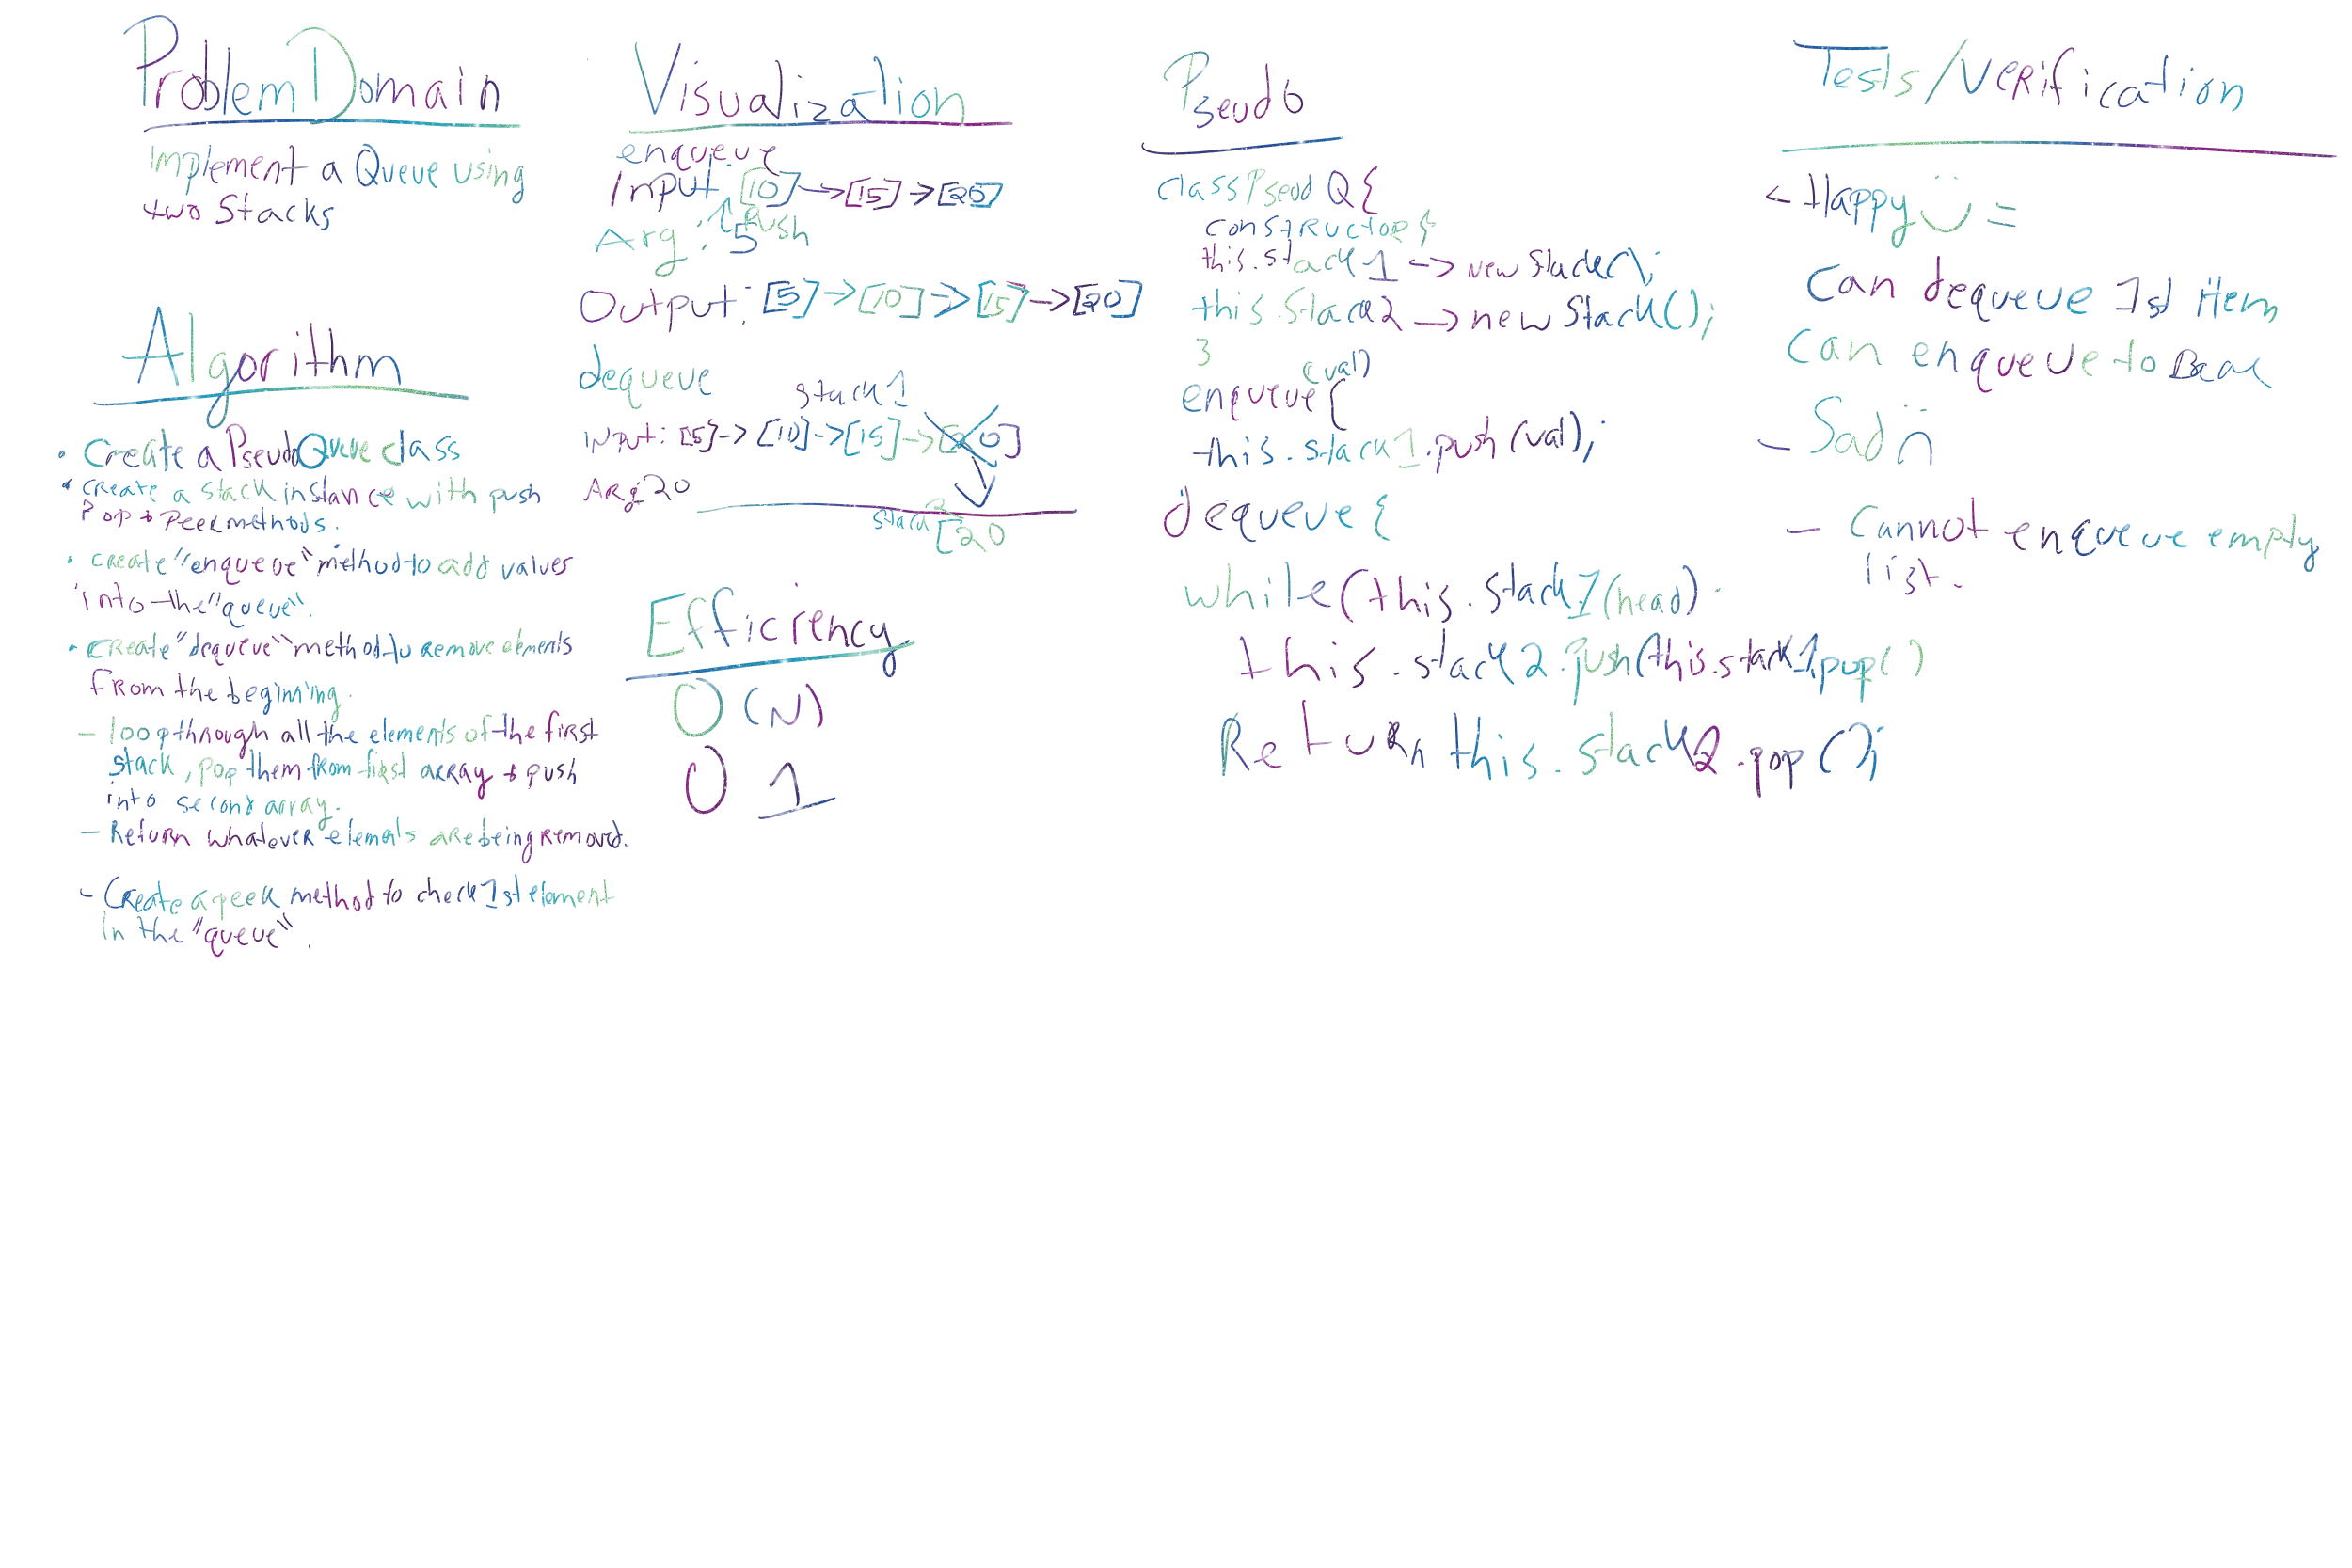 Problem Domain
Implement a Queue using
two Stacks
Algorithm
• Create a PseudoQueue class
• create a stack instance with push
Pop + Peek methods.
• create "enqueue" method to add values
into the "queue".
• create "dequeue" method to remove elements
from the beginning.
- loop through all the elements of the first
stack, pop them from first array + push
into second array.
- Return whatever elements are being removed.
- Create a peek method to check 1st element
in the "queue".
Visualization
enqueue
Input: [10] -> [15] -> [20]
↑ push
Arg: 5
Output: [5] -> [10] -> [15] -> [20]
dequeue
stack 1
Input: [5] -> [10] -> [15] -> [20]
Arg 20
stack 2 [20
Efficiency
O (N)
O 1
Pseudo
class Pseud Q {
constructor {
this.stack 1 -> new Stack();
this.Stack 2 -> new Stack();
}
(val)
enqueue {
this.stack1.push (val);
dequeue {
while (this.stack1 (head)
this.stack2.push(this.stack1.pop()
Return this.stack2.pop();
Tests/Verification
- Happy =
Can dequeue 1st item
Can enqueue to Back
- Sad
- Cannot enqueue empty
list.